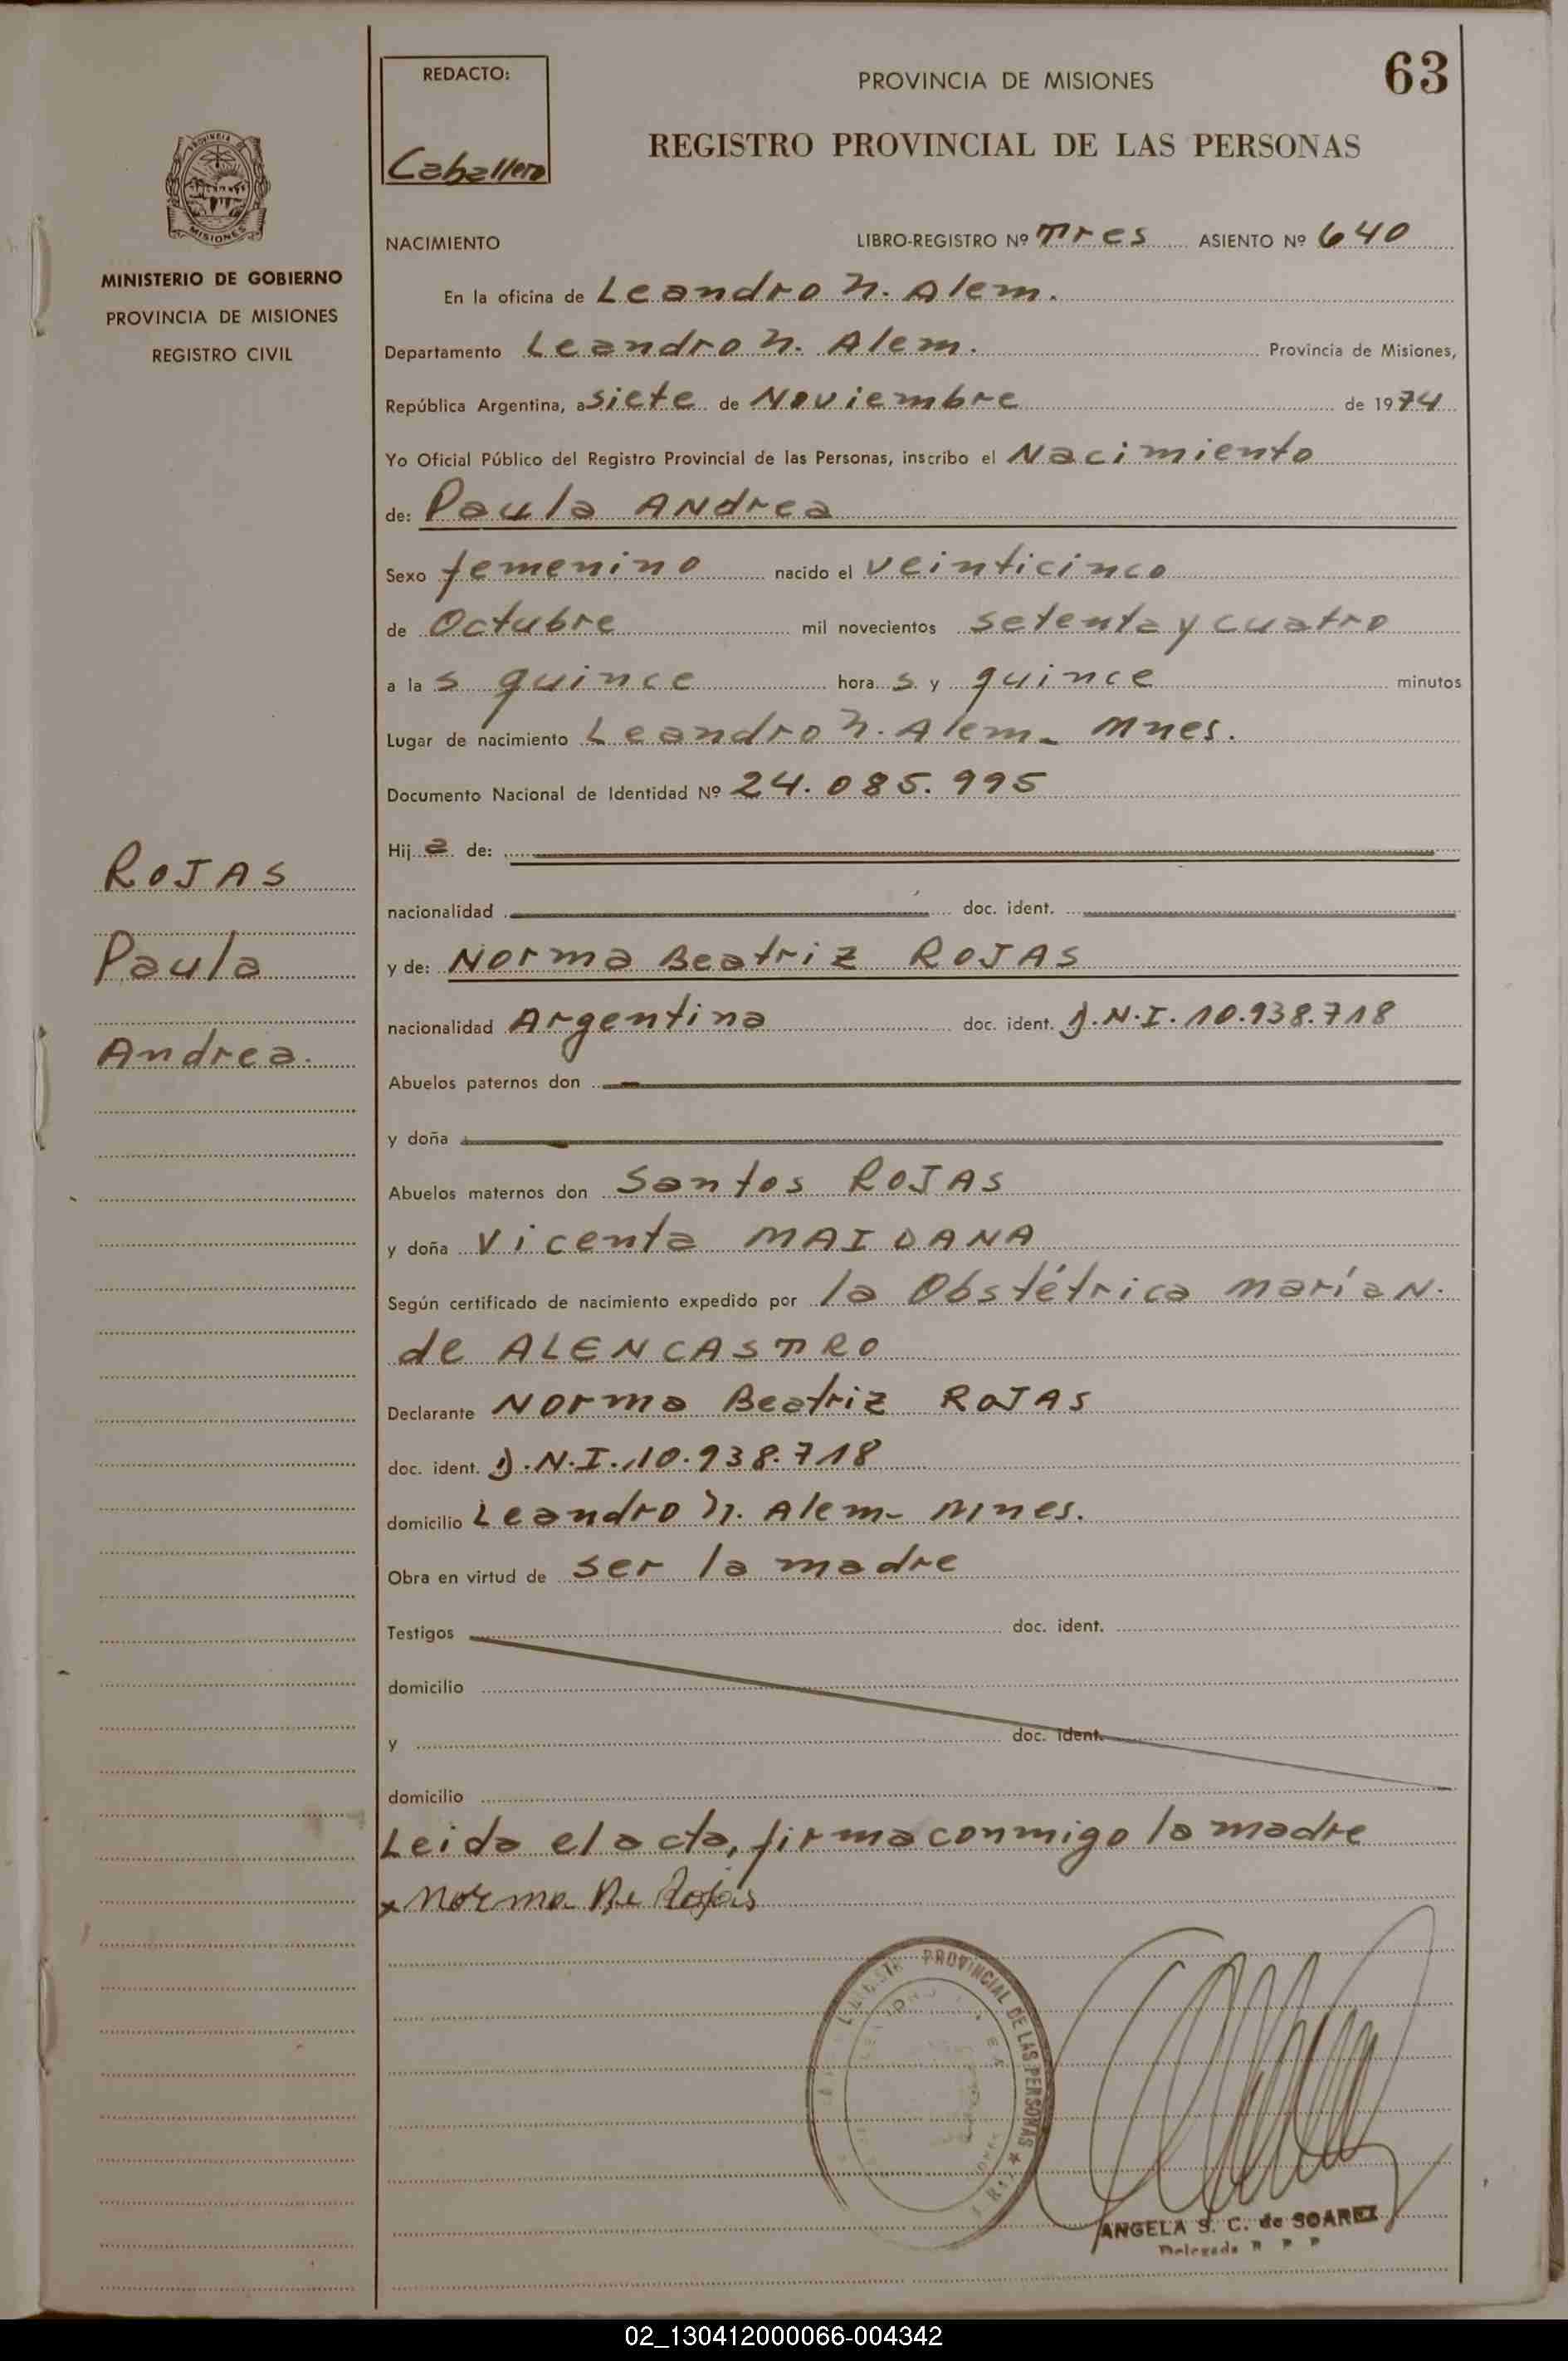 REDACTO:
Caballero
PROVINCIA DE MISIONES
63
REGISTRO PROVINCIAL DE LAS PERSONAS
MISIONES
MINISTERIO DE GOBIERNO
PROVINCIA DE MISIONES
REGISTRO CIVIL
NACIMIENTO LIBRO-REGISTRO Nº Tres ASIENTO Nº 640
En la oficina de Leandro N. Alem.
Departamento Leandro N. Alem. Provincia de Misiones,
República Argentina, a siete de Noviembre de 1974
Yo Oficial Público del Registro Provincial de las Personas, inscribo el Nacimiento
de: Paula Andrea
Sexo femenino nacido el veinticinco
de Octubre mil novecientos setenta y cuatro
a la s quince hora s y quince minutos
Lugar de nacimiento Leandro N. Alem - Mnes.
Documento Nacional de Identidad Nº 24.085.995
Hij a de:
nacionalidad doc. ident.
y de: Norma Beatriz ROJAS
nacionalidad Argentina doc. ident. D.N.I. 10.938.718
Abuelos paternos don
y doña
Abuelos maternos don Santos ROJAS
y doña Vicenta MAIDANA
Según certificado de nacimiento expedido por la Obstétrica María N.
de ALENCASTRO
Declarante Norma Beatriz ROJAS
doc. ident. D.N.I. 10.938.718
domicilio Leandro N. Alem - Mnes.
Obra en virtud de ser la madre
Testigos doc. ident.
domicilio
y doc. ident.
domicilio
Leida el acta, firma conmigo la madre
x Norma Be Rojas
ROJAS
Paula
Andrea.
PROVINCIAL DE LAS PERSONAS
ANGELA S. C. de SOAREZ
Delegada R P P
02_130412000066-004342